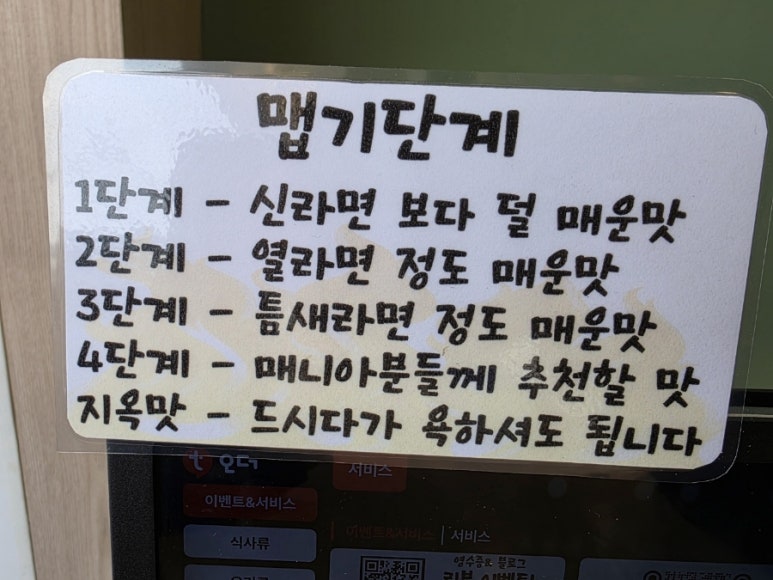 맵기단계
1단계 - 신라면 보다 덜 매운맛
2단계 - 열라면 정도 매운맛
3단계 - 틈새라면 정도 매운맛
4단계 - 매니아분들께 추천할 맛
지옥맛 - 드시다가 욕하셔도 됩니다
t 오더
서비스
이벤트&서비스
이벤트&서비스 | 서비스
식사류
영수증 & 블로그